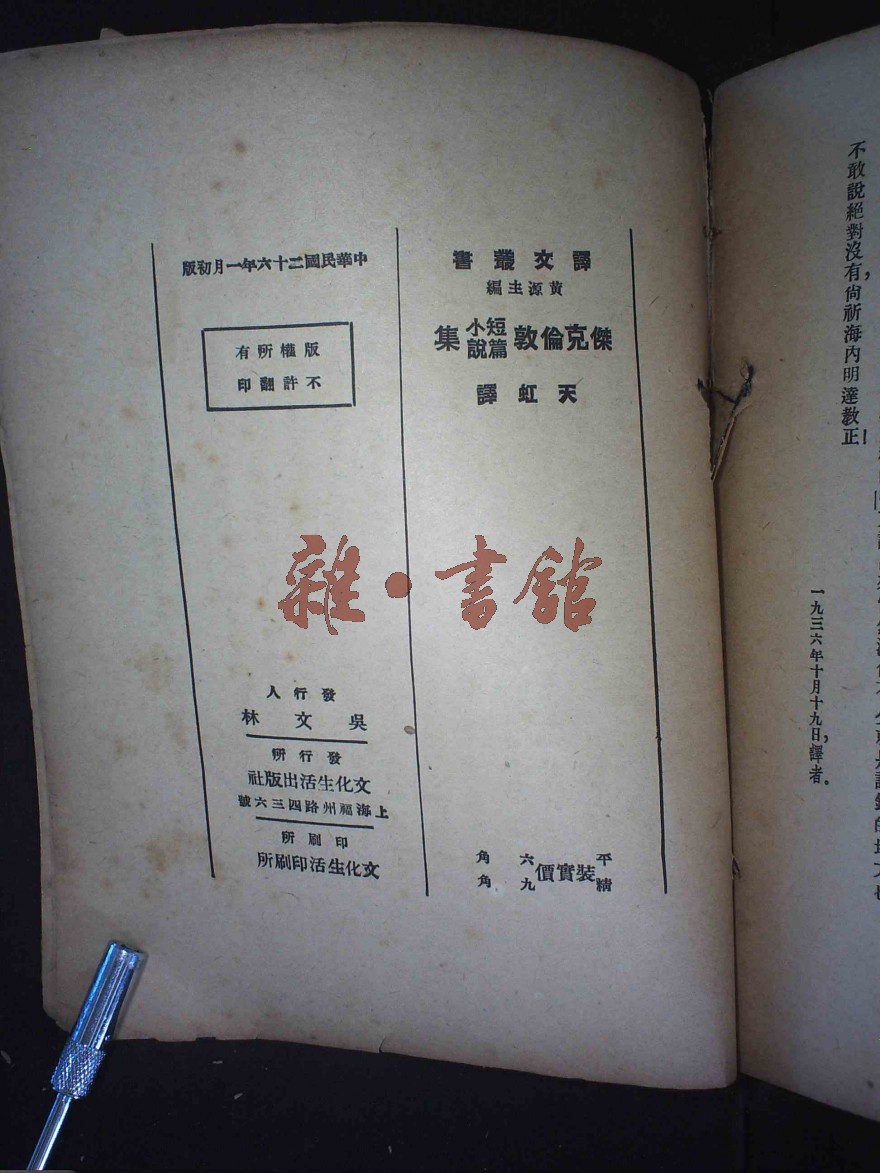 不敢說絕對沒有，尙祈海內明達教正！
一九三六年十月十九日，譯者。
譯文叢書
黃源主編
傑克倫敦短篇小說集
天虹譯
平裝實價六角
精裝實價九角
中華民國二十六年一月初版
版權所有
不許翻印
發行人
吳文林
發行所
文化生活出版社
上海福州路四三六號
印刷所
文化生活印刷所
雜·書館